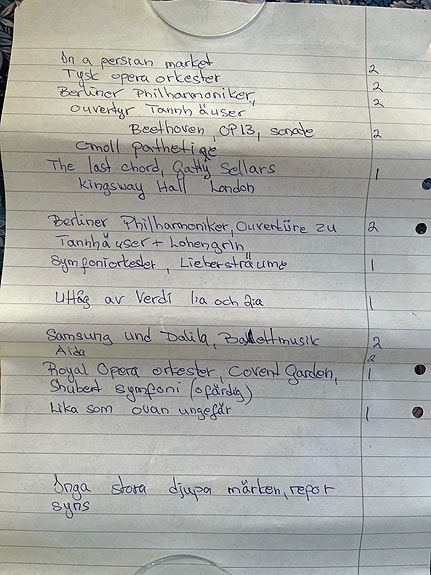 In a persian market 2
Tysk opera orkester 2
Berliner Philharmoniker, 2
ouvertyr Tannhäuser
Beethoven, OP 13, sonate 2
Cmoll pathetiqe
The last chord, Gatty Sellars 1
Kingsway Hall London
Berliner Philharmoniker, Ouvertüre zu 2
Tannhäuser + Lohengrin
Symfoniorkester, Liebersträume 1
Utåg av Verdi 1ia och 2ia 1
Samsung und Dalila, Balettmusik 2
Aida 2
Royal Opera orkester, Covent Garden, 1
Shubert symfoni (ofärdig)
Lika som ovan ungefär 1
Inga stora djupa märken, repor
syns